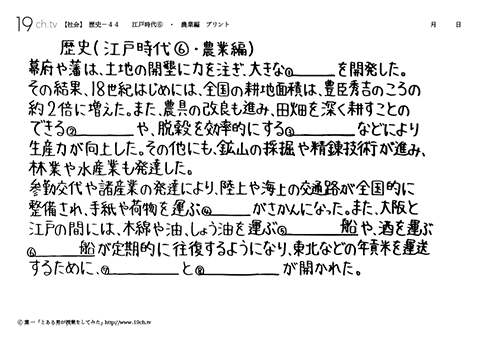 19ch.tv 【社会】 歴史－44 江戸時代⑥ ・ 農業編 プリント 月 日
歴史(江戸時代⑥・農業編)
幕府や藩は、土地の開墾に力を注ぎ、大きな①______を開発した。
その結果、18世紀はじめには、全国の耕地面積は、豊臣秀吉のころの
約2倍に増えた。また、農具の改良も進み、田畑を深く耕すことの
できる②________や、脱穀を効率的にする③________などにより
生産力が向上した。その他にも、鉱山の採掘や精錬技術が進み、
林業や水産業も発達した。
参勤交代や諸産業の発達により、陸上や海上の交通路が全国的に
整備され、手紙や荷物を運ぶ④______がさかんになった。また、大阪と
江戸の間には、木綿や油、しょう油を運ぶ⑤________船や、酒を運ぶ
⑥______船が定期的に往復するようになり、東北などの年貢米を運送
するために、⑦________と⑧________が開かれた。
© 葉一「とある男が授業をしてみた」http://www.19ch.tv